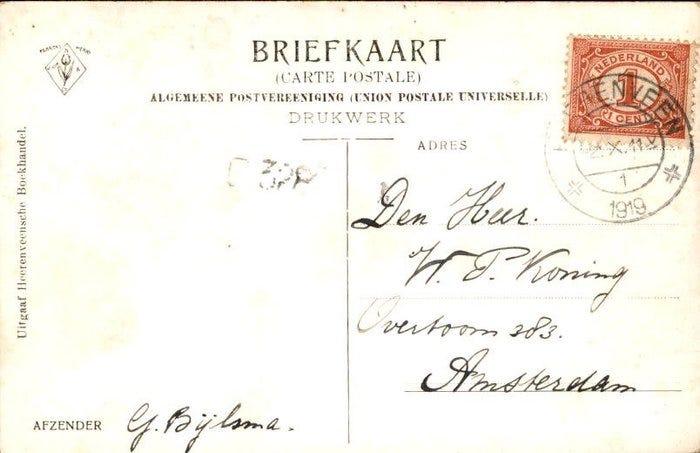 BRIEFKAART
(CARTE POSTALE)
ALGEMEENE POSTVEREENIGING (UNION POSTALE UNIVERSELLE)
DRUKWERK
ADRES
NEDERLAND
1
1 CENT
ENVEEN
1
1919
Den Heer.
W. P. Koning
Overtoom 383.
Amsterdam
AFZENDER G. Bijlsma.
Uitgaaf Heerenveensche Boekhandel.